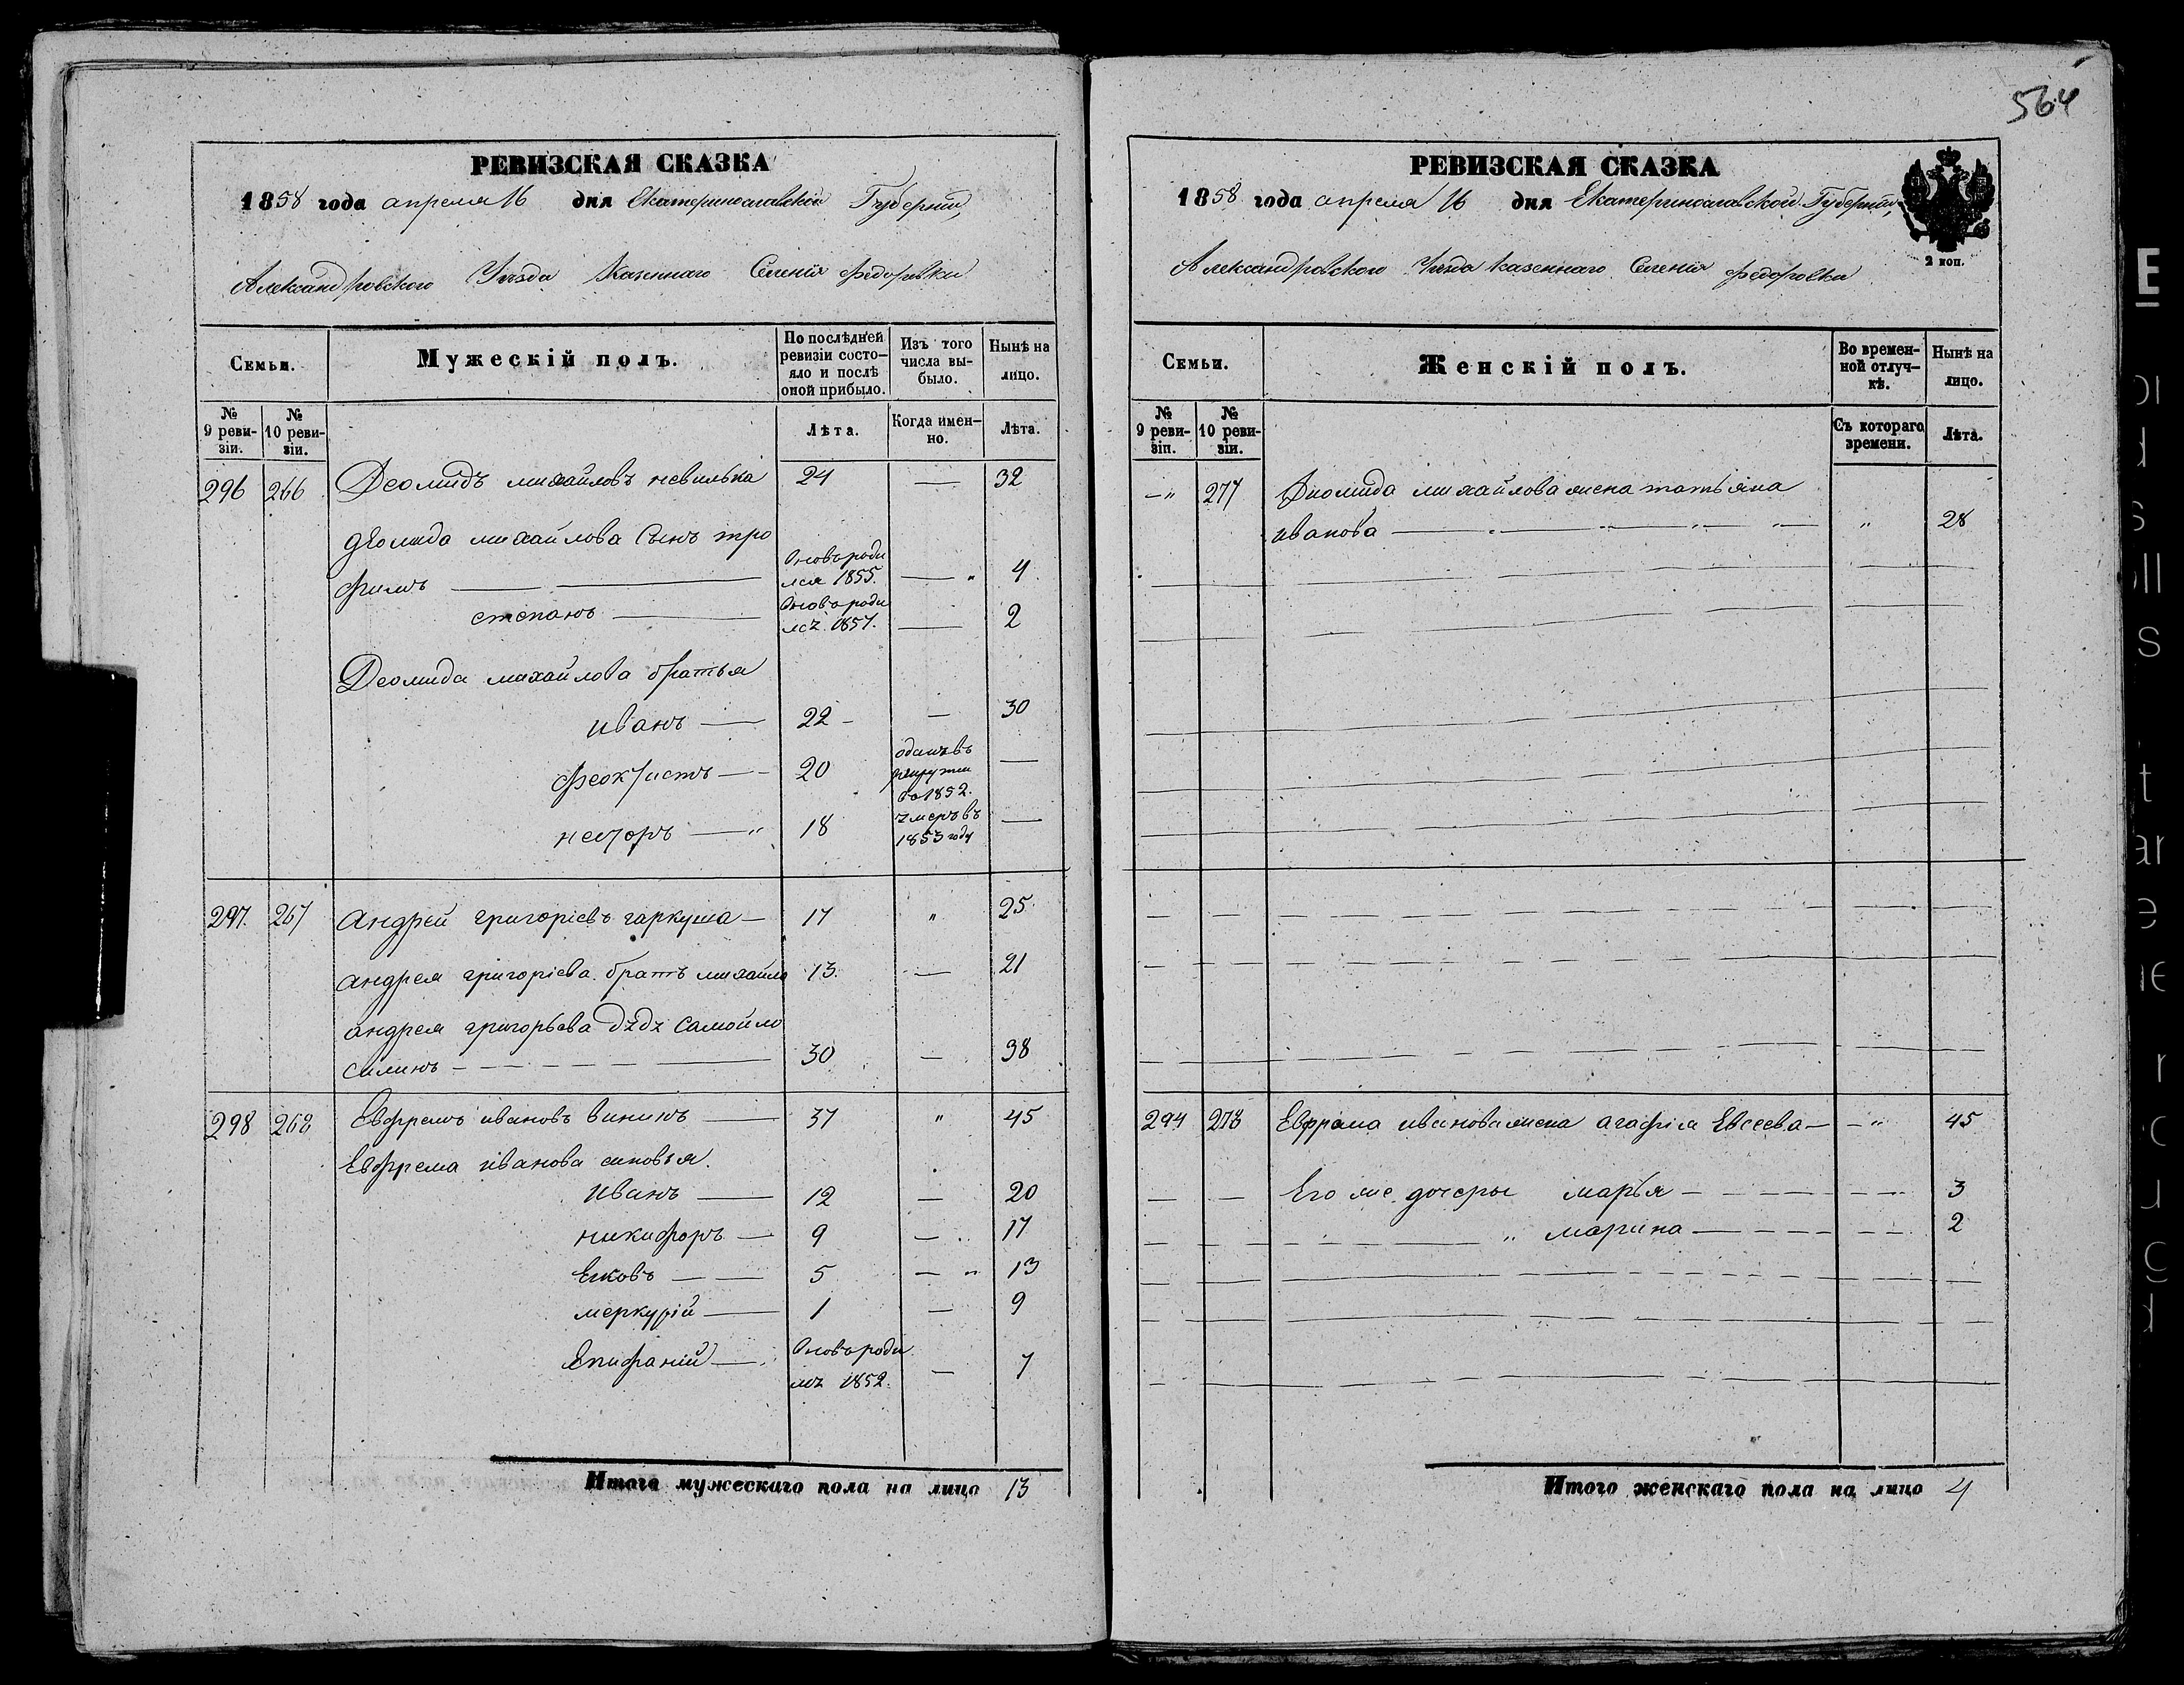 564
РЕВИЗСКАЯ СКАЗКА
1858 года апреля 16 дня Екатеринославской Губернии,
Александровского Уѣзда Казеннаго Селенія Федоровки
Семьи.
Мужескій полъ.
По послѣдней ревизіи состо-
яло и послѣ
оной прибыло.
Изъ того числа вы-
было.
Нынѣ на лицо.
№ 9 реви-
зіи.
№ 10 реви-
зіи.
Лѣта.
Когда имен-
но.
Лѣта.
296 266 Деомидъ михайловъ 24 — 32
деомида михаилова Сынъ тро
фимъ — вновь роди
лся 1855. — 4
степанъ — вновь роди
лсѧ 1857. — 2
Деомида михайлова братья
иванъ — 22 — 30
феоктистъ — 20 вo 1852. —
несторъ — 18 умеръ въ
1853 году —
297. 267 Андрей григоріевъ гаркуша — 17 " 25
андрея григоріева братъ михайло 13. — 21
андрея григорьева дѧдѧ Самойло
силинъ — 30 — 38
298 268 Евфремъ ивановъ виникъ — 37 " 45
Евфрема иванова синовья.
иванъ — 12 — 20
никифоръ — 9 — 17
Ековъ — 5 — 13
меркурій — 1 — 9
Епифаній — вновь роди
лсѧ 1852. — 7
Итого мужескаго пола на лицо 13
РЕВИЗСКАЯ СКАЗКА
1858 года апреля 16 дня Екатеринославской Губерніи,
Александровского Уѣзда казеннаго Селенія федоровки
2 коп.
Семьи.
Женскій полъ.
Во времен-
ной отлуч-
кѣ.
Нынѣ на лицо.
№ 9 реви-
зіи.
№ 10 реви-
зіи.
Съ котораго времени.
Лѣта.
—" 277 Диомида михайлова жена татьяна
иванова — " 28
294 278 Евфрама иванова жена агафіа Евсеева — —" 45
Его же дочеры марья — 3
" марина — 2
Итого женскаго пола на лицо 4